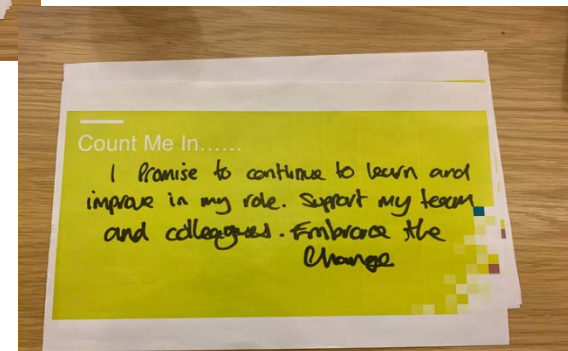 Count Me In......
I Promise to continue to learn and
improve in my role. Support my team
and colleagues. Embrace the
Change